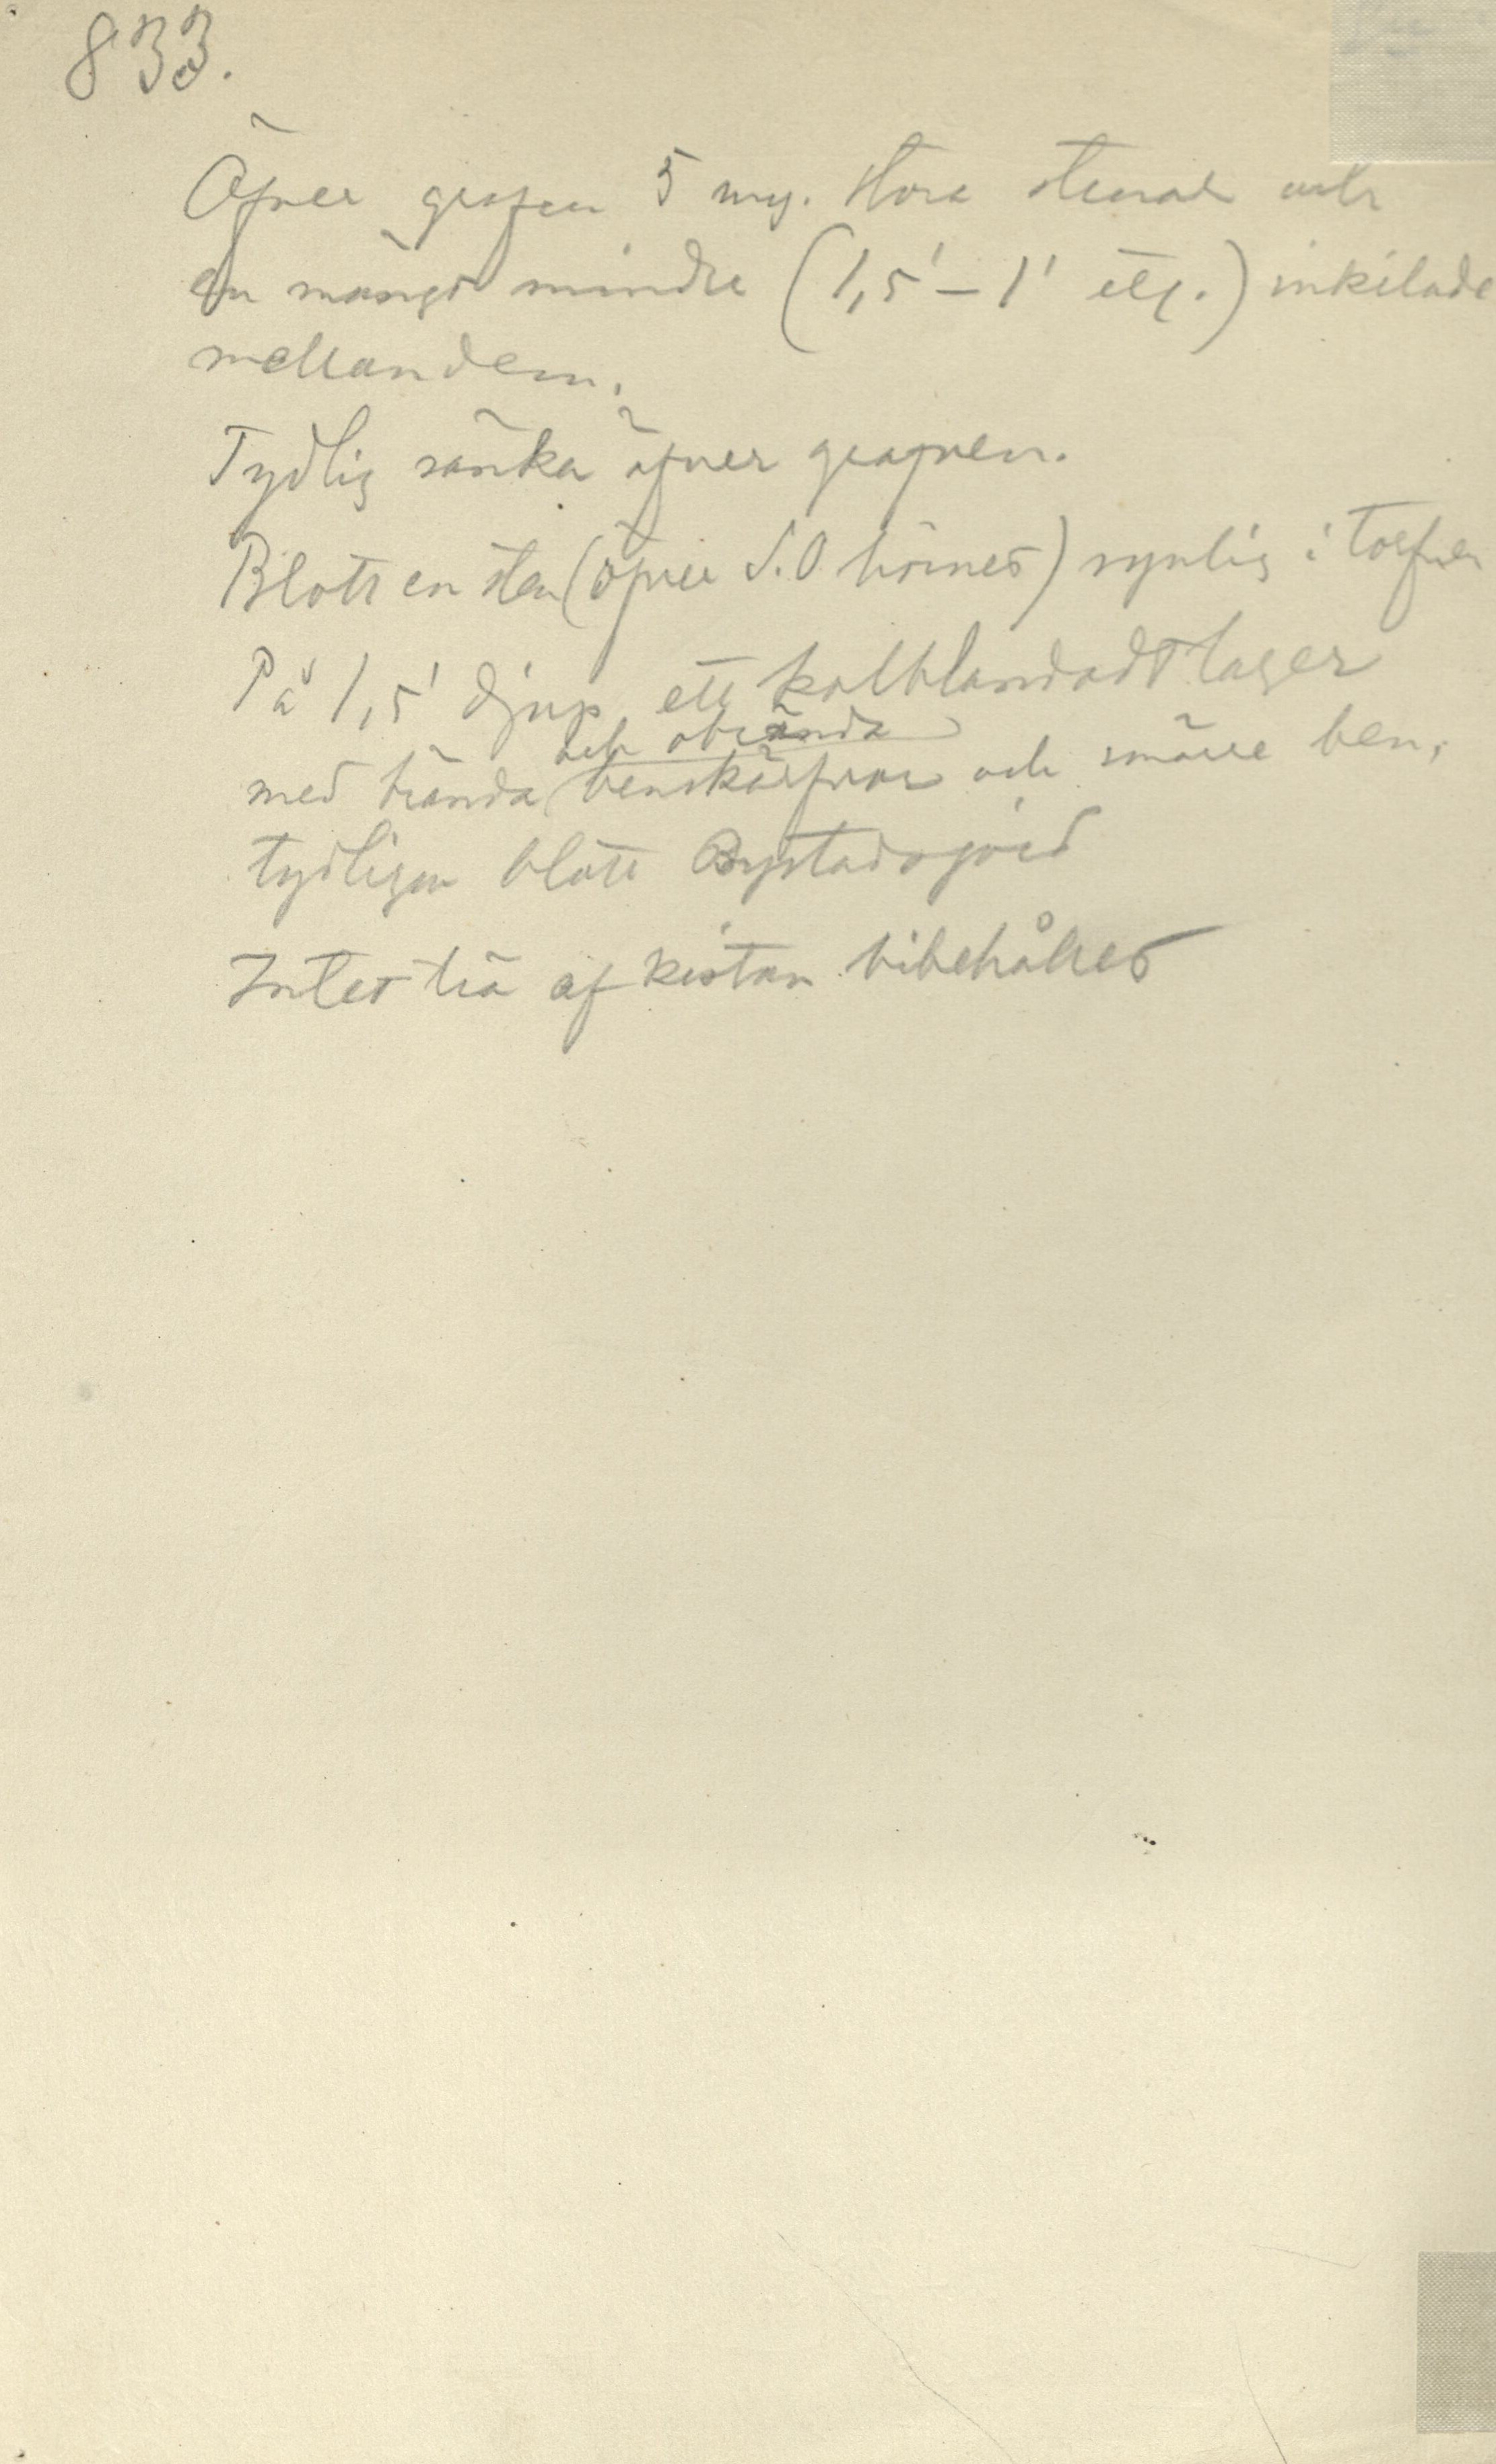 833.
Öfver grafen 5 myc. stora stenar och
en mängd mindre (1,5' – 1' etc.) inkilade
mellan dem.
Tydlig sänka öfver grafven.
Blott en sten (öfver S.O hörnet) synlig i torfven
På 1,5' djup ett kolblandadt lager
och obrända
med brända benskärfvor och smärre ben,
tydligen blott Bystadsjord
Intet trä af kistan bibehållet